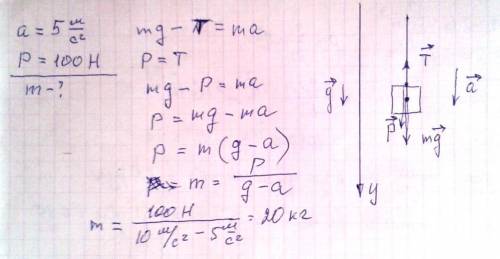 a = 5 м/с²
P = 100 Н
m - ?
mg - T = ma
P = T
mg - P = ma
P = mg - ma
P = m (g - a)
m = P / (g - a)
m = 100 Н / (10 м/с² - 5 м/с²) = 20 кг
T
a
g
P
mg
y